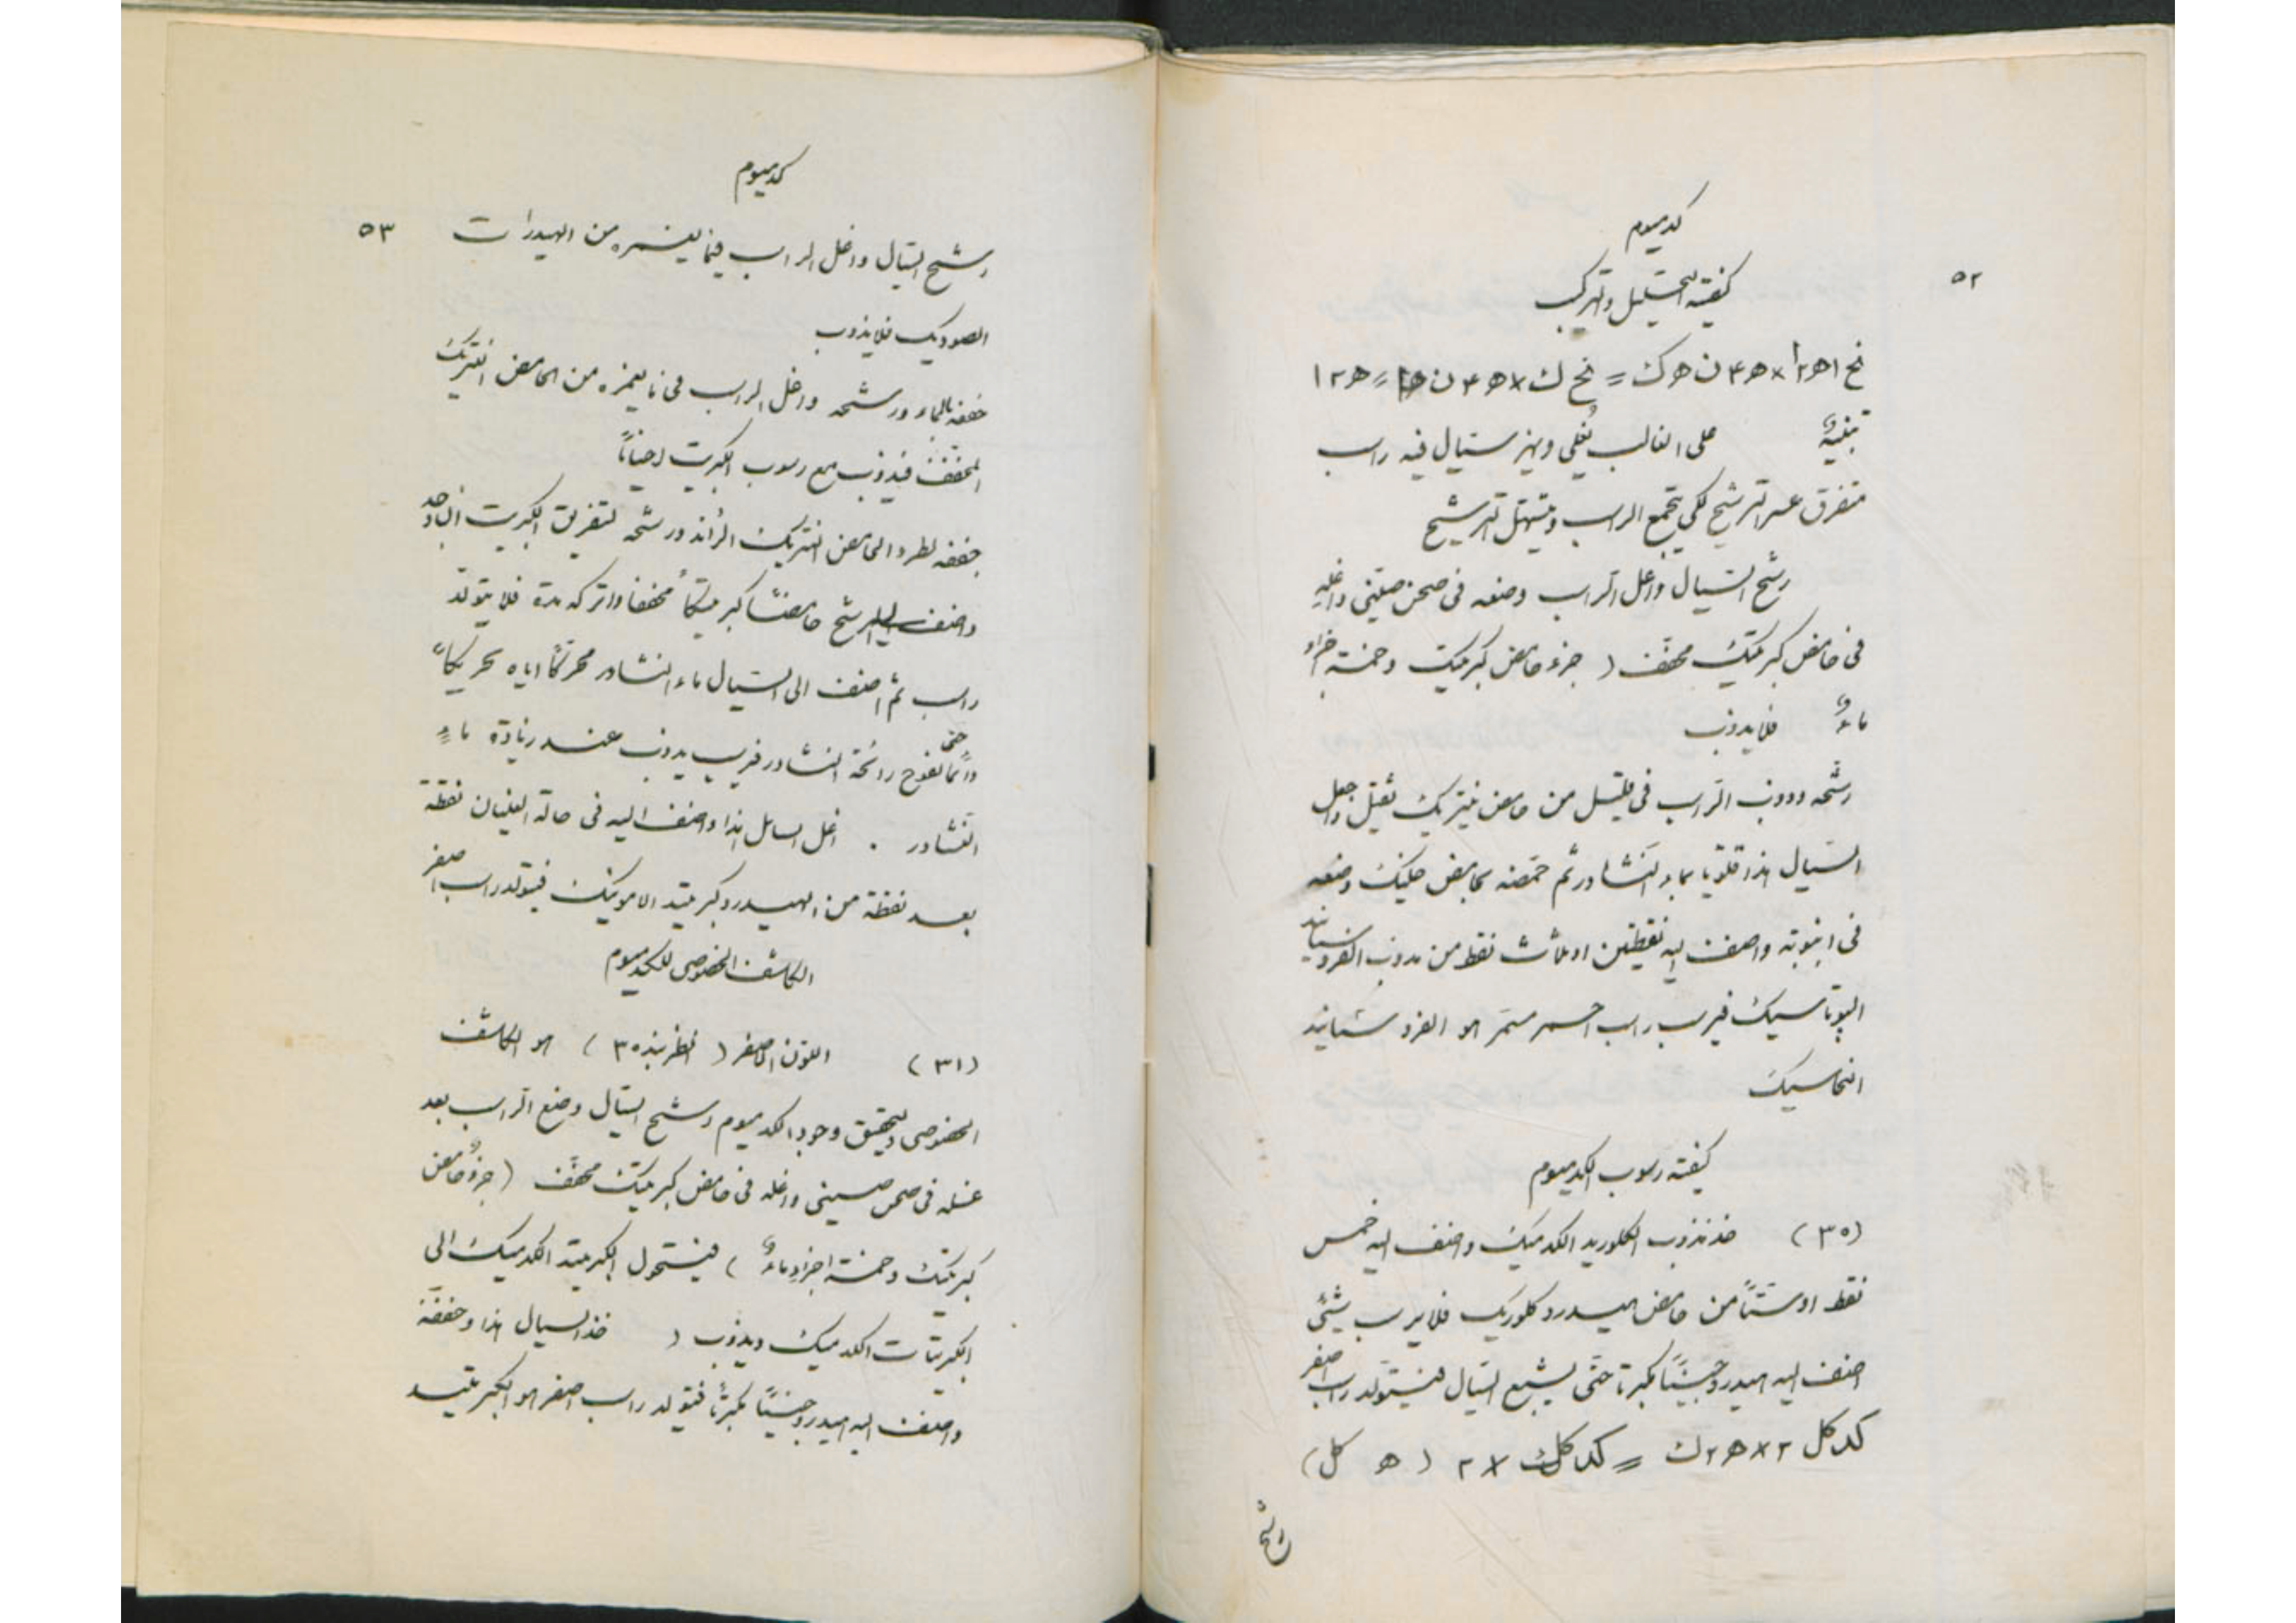 ٥٢
كدميوم
كيفية التحليل والتركيب
نح ا ه٢ ا × ه٤ ن ه ك = نح ك × ه٤ ن ه = ه٢ ا
تنبيهٌ على الغالب يُغلى ويهز سيال فيه راسب
متفرق عسر الترشيح لكي يتجمع الراسب ويتسهل الترشيح
رشح السيال واغل الراسب وضعه في صحن صيني واغله
في حامض كبرتيك مخفّف ( جزء حامض كبرتيك وخمسة اجزاء
ماءٌ فلا يذوب
رشّحه وذوب الراسب في قليل من حامض نيتريك ثقيل واجعل
السيال هذا قلويا بماء النشادر ثم حمّضه بحامض خليك وضعه
في انبوبة واضف اليه نقطتين او ثلاث نقط من مذوب الفروسيانيد
البوتاسيك فيرسب راسب احمر مسمر هو الفروسيانيد
النحاسيك
كيفية رسوب الكدميوم
(٣٠) خذ مذوب الكلوريد الكدميك واضف اليه خمس
نقط او ستّاً من حامض هيدروكلوريك فلا يرسب شيئ
اضف اليه هيدروجيناً مكبرتا حتى يشبع السيال فيتولد راسب اصفر
كد كل ٢ × ه٢ ك = كد ك × ٢ ( ه كل )
رشح
كدميوم
٥٣
رشح السيال واغل الراسب فيما يغمره من الهيدرات
الصوديك فلا يذوب
خففه بالماء ورشحه واغل الراسب في ما يغمره من الحامض النتريك
المخفف فيذوب مع رسوب الكبريت احياناً
جففه لطرد الحامض النتريك الزائد ورشحه لتفريق الكبريت ان وجد
واضف الى المرشح حامضاً كبريتيكاً مخففا واتركه مدة فلا يتولد
راسب ثم اضف الى السيال ماء النشادر محركاً اياه تحريكاً
دائما حتى تفوح رائحة النشادر فيرسب يذوب عند زيادة ماء
النشادر . اغل السائل هذا واضف اليه في حالة الغليان نقطة
بعد نقطة من الهيدروكبريتيد الامونيك فيتولد راسب اصفر
الكاشف الخصوصي للكدميوم
(٣١) اللون الاصفر ( انظر نبذه ٣٠ ) هو الكاشف
الخصوصي ولتحقيق وجود الكدميوم رشح السيال وضع الراسب بعد
غسله في صحن صيني واغله في حامض كبريتيك مخفّف ( جزءٌ حامض
كبرتيك وخمسة اجزاء ماءٌ ) فيستحول الكبرتيد الكدميك الى
الكبريتات الكدميك ويذوب ( خذ السيال هذا وخففه
واضف اليه هيدروجيناً مكبرتاً فيتولد راسب اصفر هو الكبرتيد